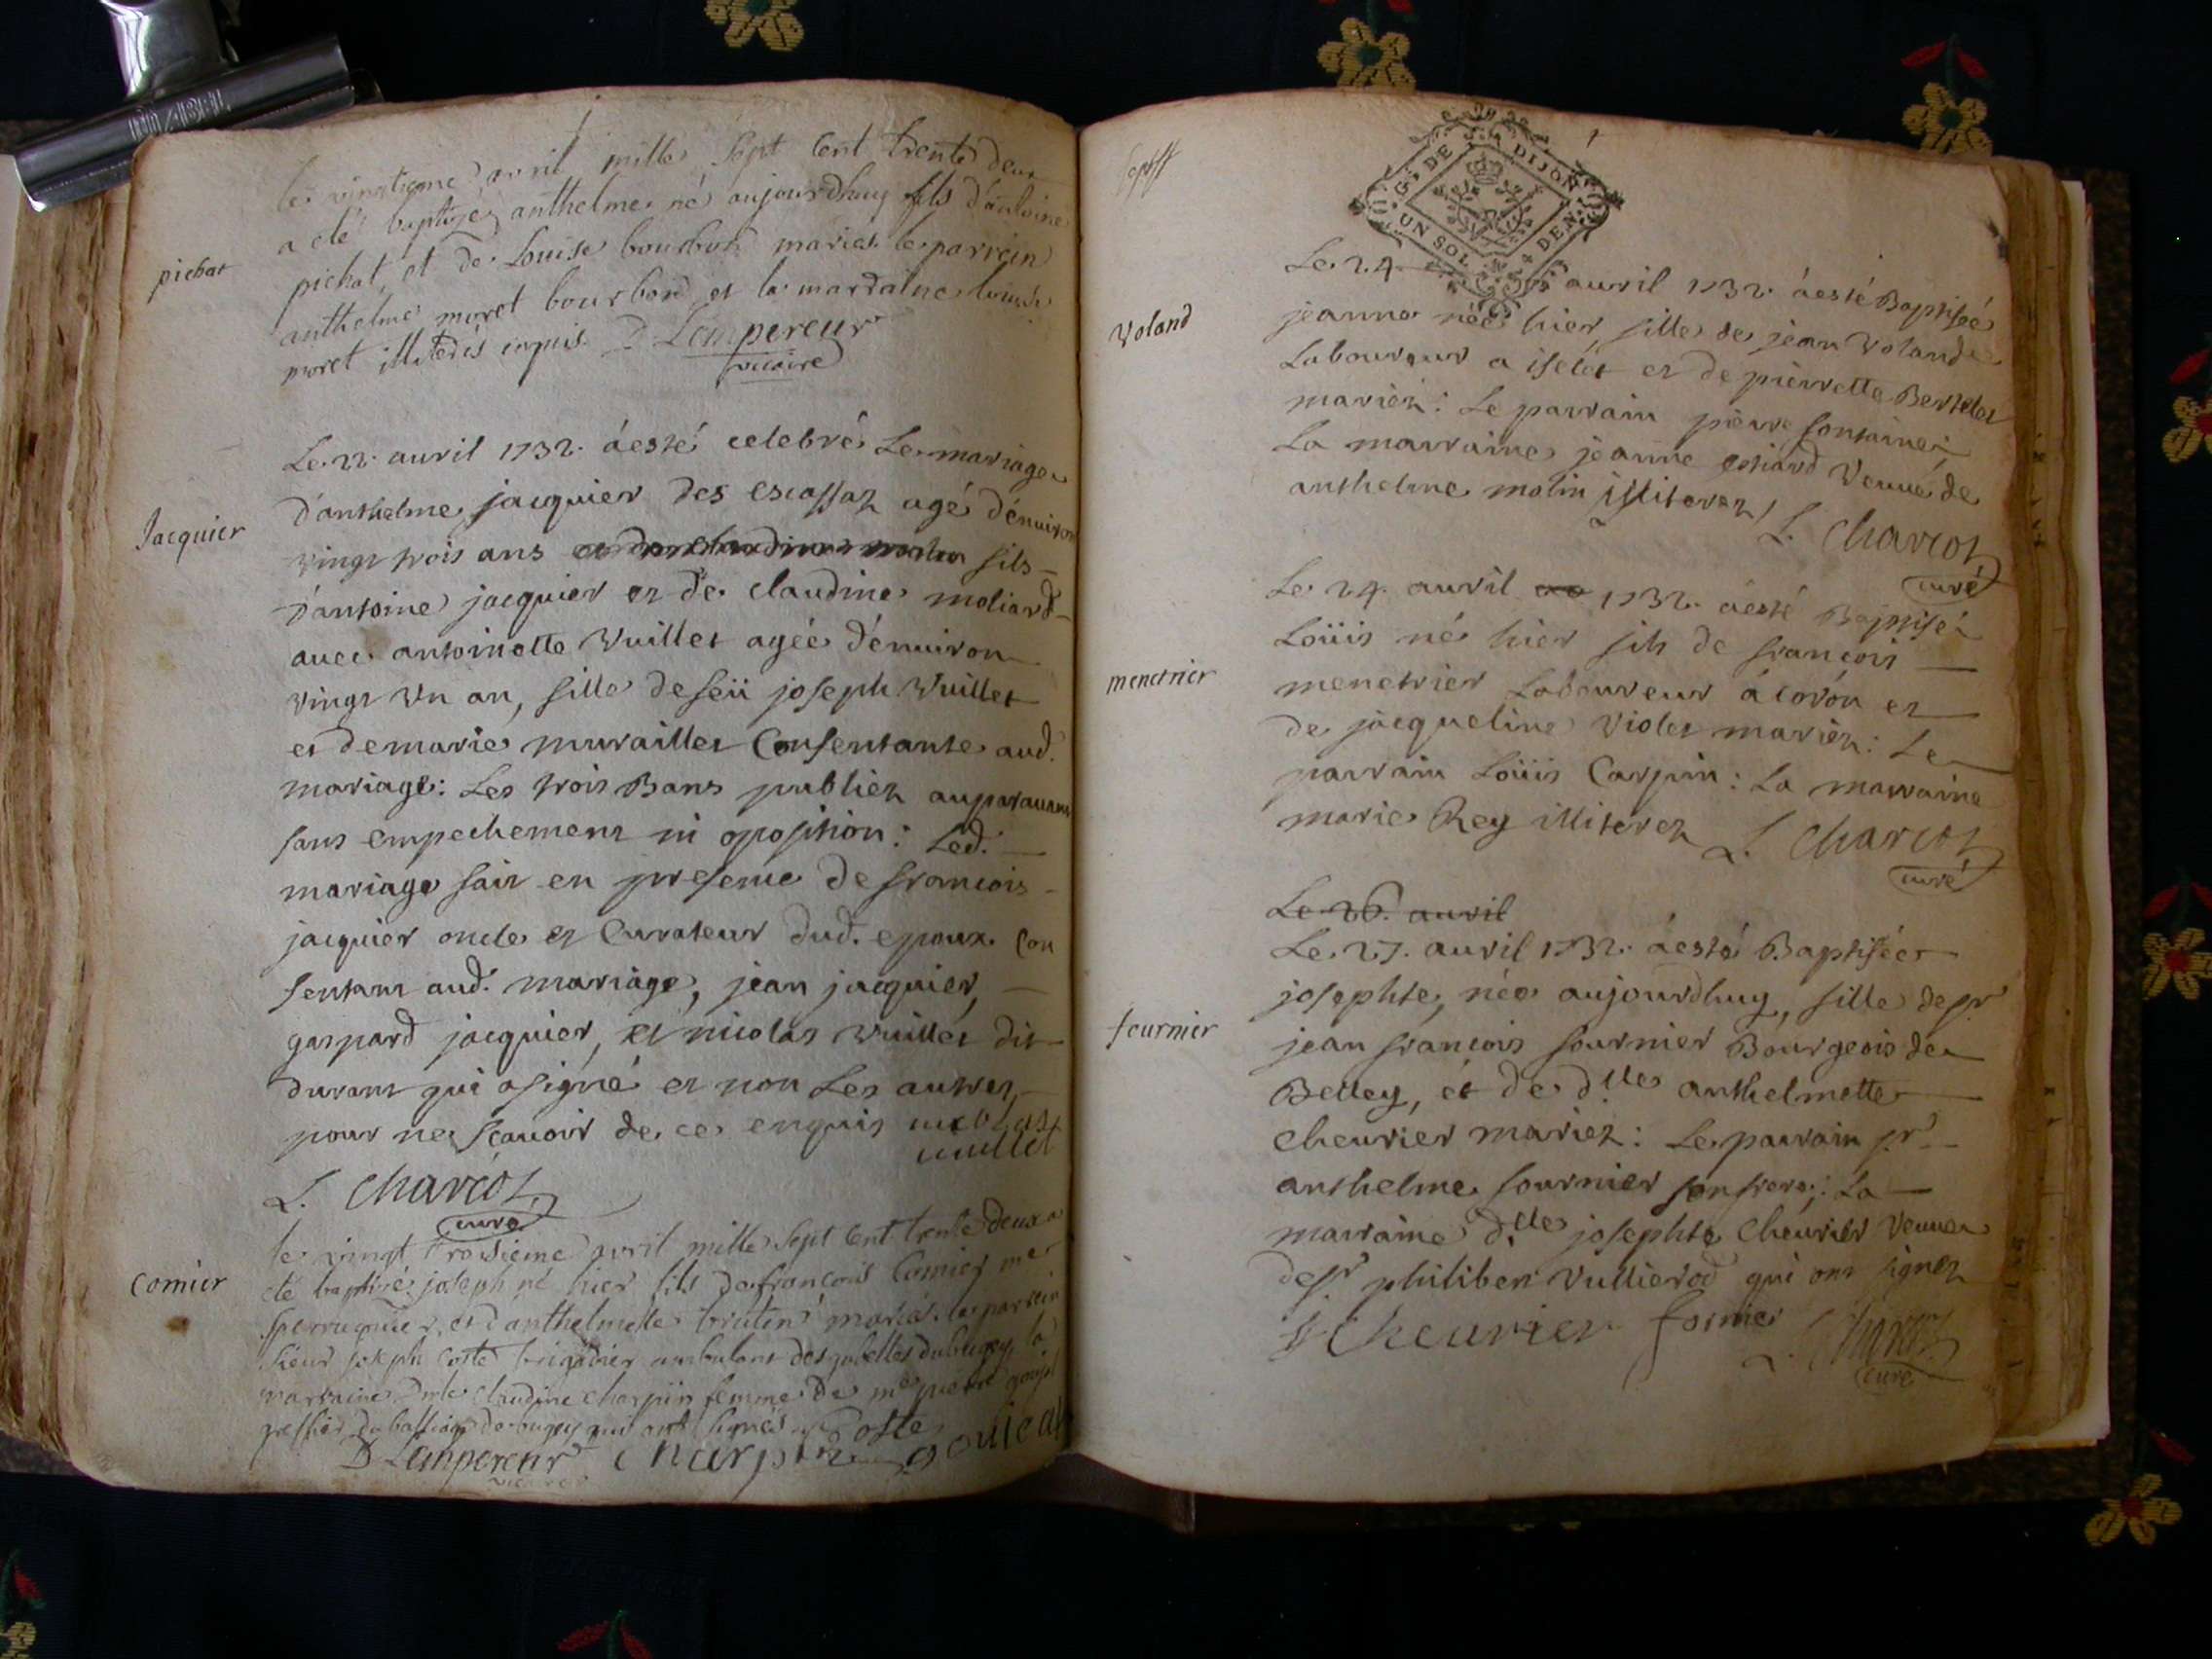 le vingtieme avril mille sept cent trente deux
a eté baptizé anthelme né aujourdhuy fils d'antoine
pichat
pichat, et de Louise bourbon mariés le parrein
anthelme moret bourbon et la marraine louise
moret illiterés enquis D Lempereur
vicaire
Le 22. auril 1732. á esté celebré Le mariage
Jacquier
d'anthelme jacquier des escassaz agé d'enuiron
vingt trois ans fils
d'antoine jacquier et de claudine moliard
auec antoinette Vuillet agéé d'enuiron
vingt Vn an, fille de feü joseph Vuillet
et de marie muraillet Consentante aud.
mariage: Les trois Bans publiez auparauant
sans empechement ni oposition: Led.
mariage fait en presence de francois
jacquier oncle et Curateur dud. epoux Con
sentant aud. mariage, jean jacquier,
gaspard jacquier, et nicolas Vuillet dit
durant qui a signé et non Les autres,
pour ne sçauoir de ce enquis nicolas
uuillet
L. Charcot
curé
le vingt troisieme avril mille sept cent trente deux a
Comier
eté baptizé joseph né hier fils de francois Comier me
perruquier, et d'anthelmette mariés. le parrein
sieur joseph Coste brigadier ambulant des gabelles du bugey, la
marraine Dlle claudine charpin femme de me pierre
greffier du bailliage de bugey qui ont signés Coste
D Lempereur Charpin goujeat
vicaire
G. DE DIJON
UN SOL 4 DEN.
Le 24. auril 1732. á esté Baptiséé
Voland
jeanne néé hier, fille de jean Voland
Laboureur a iselet et de pierrette Berthelet
mariéz: Le parrain pierre fontaine;
La marraine jeanne Veuue de
anthelme molin illiterez L. Charcot
curé
Le 24. auril 1732. á esté Baptisé
Loüis né hier fils de francois
menetrier
menetrier Laboureur á coron et
de jacqueline Violet mariéz: Le
parrain Loüis Carpin: La marraine
marie Rey illiterez L. Charcot
curé
Le 26. auril
Le 27. auril 1732. á esté Baptiséé
josephte, néé aujourdhuy, fille de sr
fournier
jean francois fournier Bourgeois de
Belley, et de dlle anthelmette
Cheurier mariez: Le parrain sr
anthelme fournier son frere; La
marraine dlle josephte Cheurier Veuue
de sr philibert Vullierod qui ont signez
J Cheurier fornier L. Charcot
curé